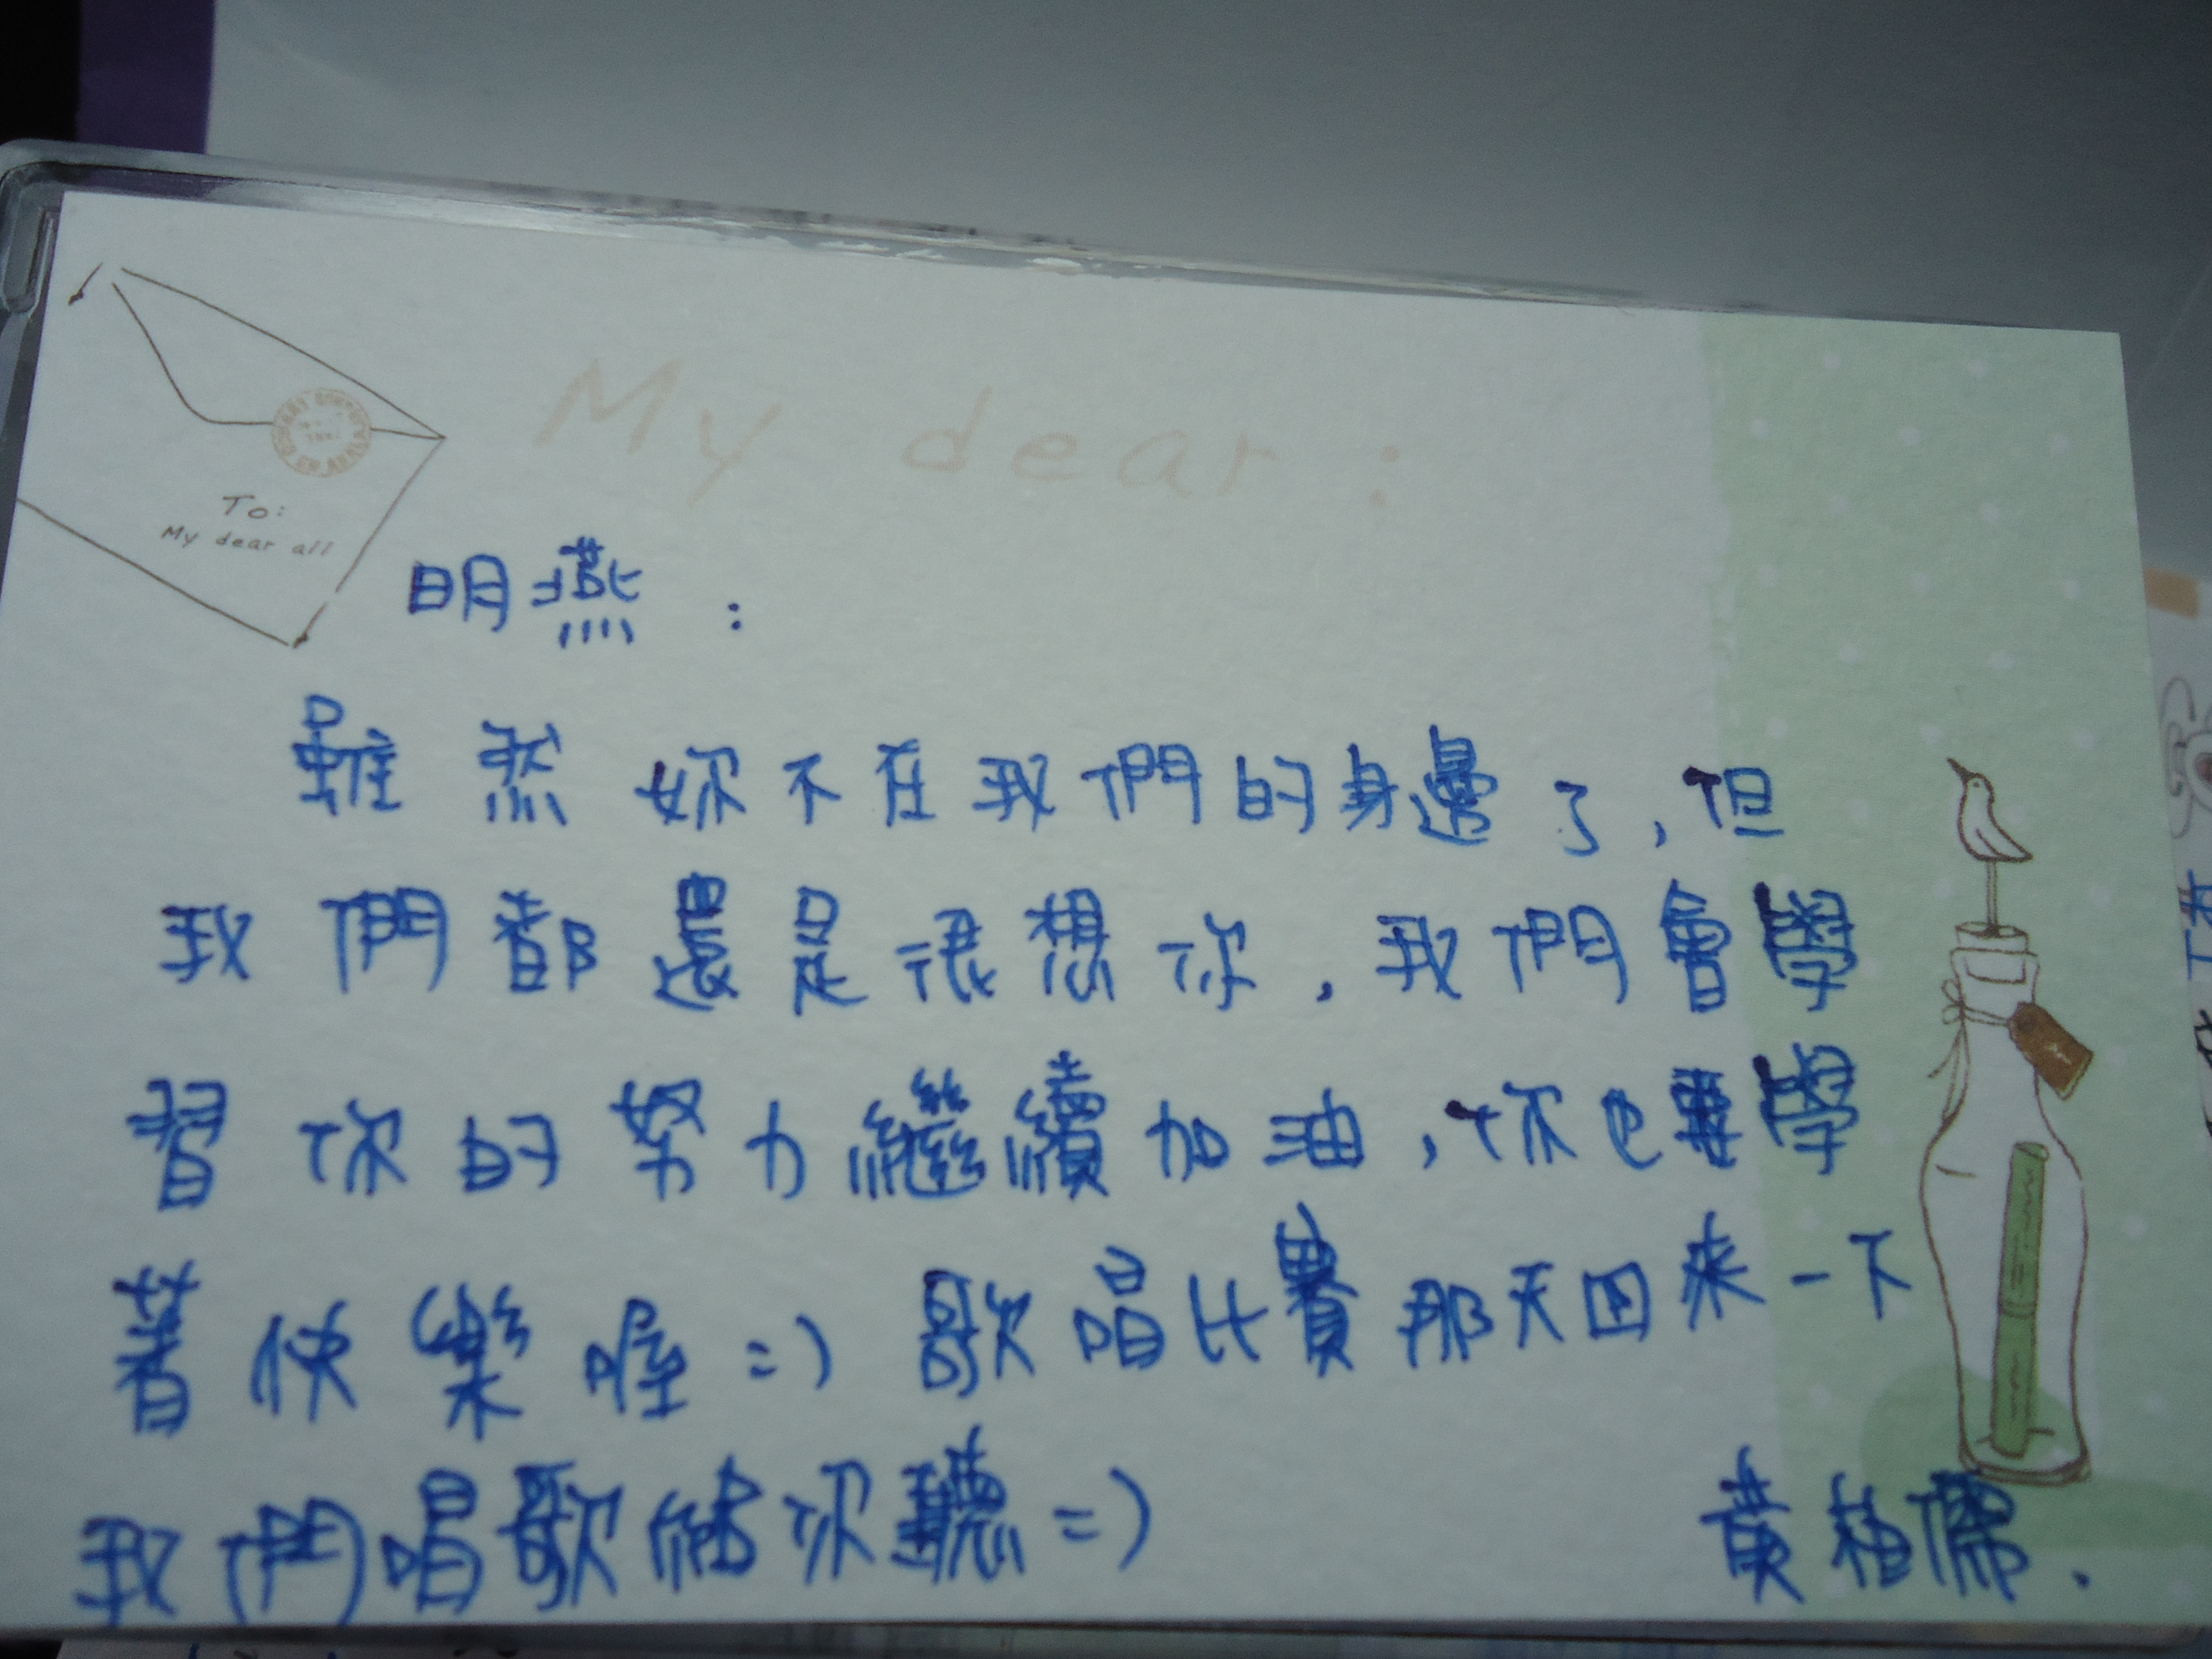 My dear :
To:
My dear all
明燕 :
雖然妳不在我們的身邊了,但
我們都還是很想你,我們會學
習你的努力繼續加油,你也要學
著快樂喔=) 歌唱比賽那天回來一下
我們唱歌給你聽=)
黃柏儒.